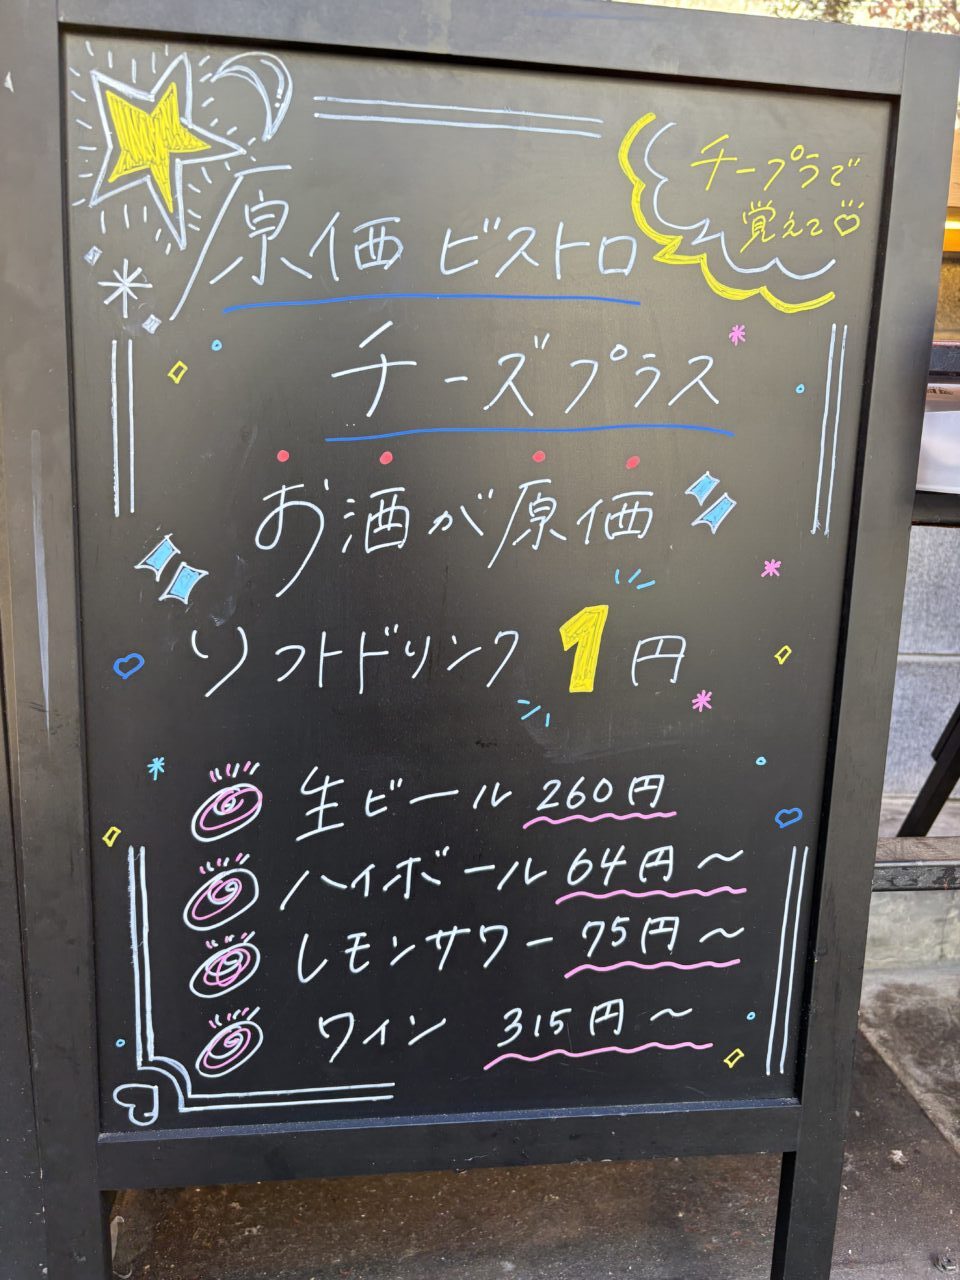 チープラで
覚えて
原価ビストロ
チーズプラス
お酒が原価
ソフトドリンク 1円
生ビール 260円
ハイボール 64円～
レモンサワー 75円～
ワイン 315円～